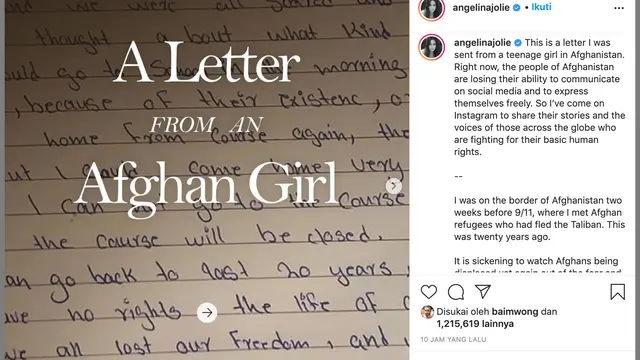 and we were all scared and
thought a bout what kind
ould go to School that morning
, because of their existenc, o
home from Course again, the
ut I could come home very
I can not go to the Course
the course will be closed.
an go back to last 20 years,
ave no rights the life of
we all lost our Freedom, and
A Letter
FROM AN
Afghan Girl
angelinajolie • Ikuti
angelinajolie This is a letter I was
sent from a teenage girl in Afghanistan.
Right now, the people of Afghanistan
are losing their ability to communicate
on social media and to express
themselves freely. So I've come on
Instagram to share their stories and the
voices of those across the globe who
are fighting for their basic human
rights.
--
I was on the border of Afghanistan two
weeks before 9/11, where I met Afghan
refugees who had fled the Taliban. This
was twenty years ago.
It is sickening to watch Afghans being
displaced yet again out of the fear and
Disukai oleh baimwong dan
1,215,619 lainnya
10 JAM YANG LALU